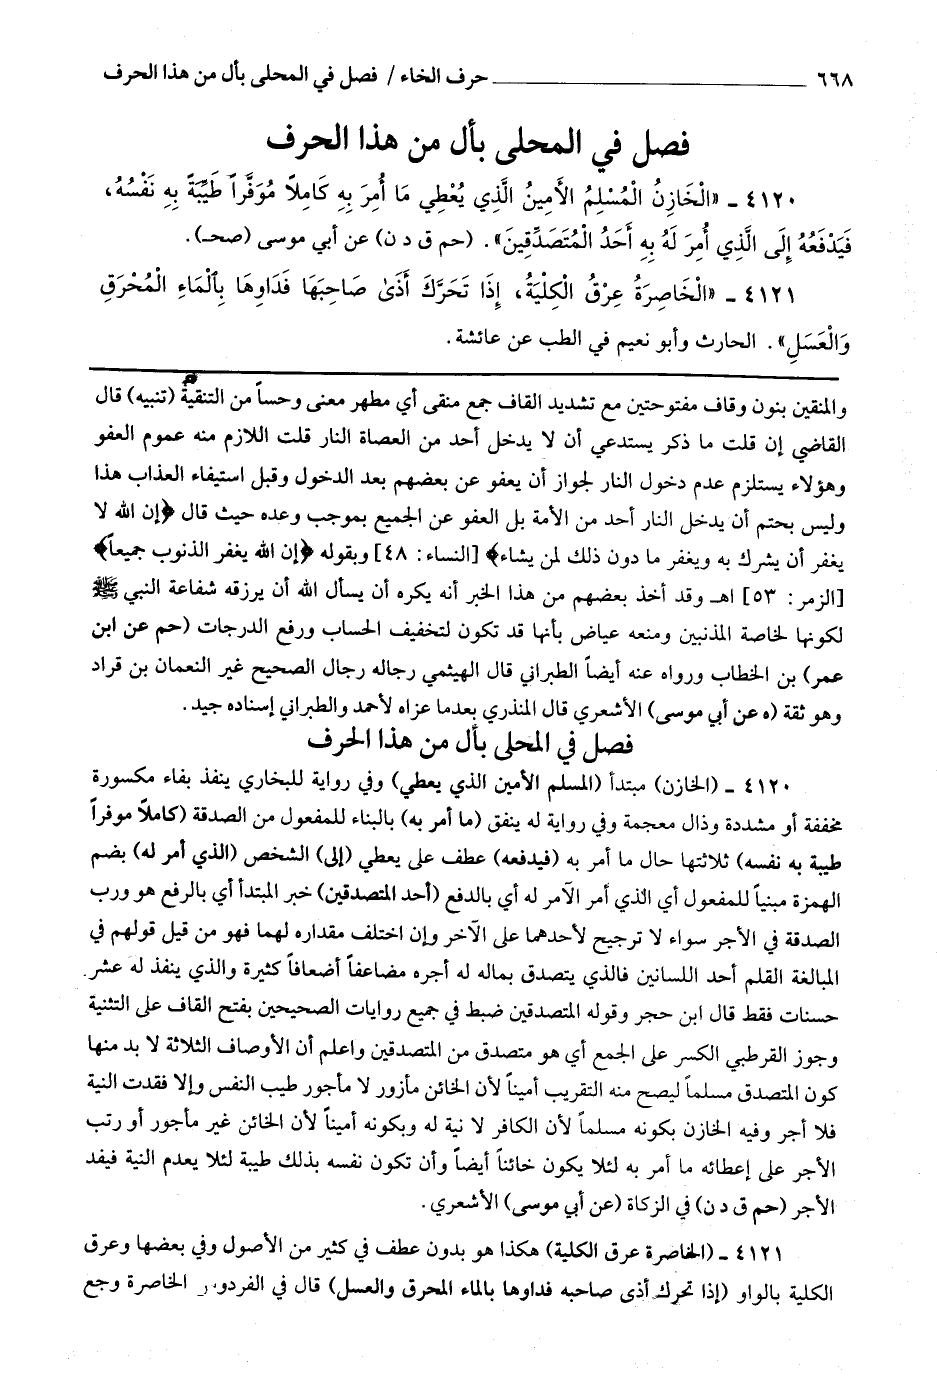 ٦٦٨ ــــــــــــــــــــــــــــــــ حرف الخاء / فصل في المحلى بأل من هذا الحرف
فصل في المحلى بأل من هذا الحرف
٤١٢٠ ـ «الْخَازِنُ الْمُسْلِمُ الأَمِينُ الَّذِي يُعْطِي مَا أُمِرَ بِهِ كَامِلاً مُوَفَّراً طَيِّبَةً بِهِ نَفْسُهُ،
فَيَدْفَعُهُ إِلَى الَّذِي أُمِرَ لَهُ بِهِ أَحَدُ الْمُتَصَدِّقِينَ». (حم ق د ن) عن أبي موسى (صحـ).
٤١٢١ ـ «الْخَاصِرَةُ عِرْقُ الْكِلْيَةُ، إِذَا تَحَرَّكَ أَذَىٰ صَاحِبَهَا فَدَاوِهَا بِٱلْمَاءِ الْمُحْرَقِ
وَالْعَسَلِ». الحارث وأبو نعيم في الطب عن عائشة.
والمنقين بنون وقاف مفتوحتين مع تشديد القاف جمع منقى أي مطهر معنى وحساً من التنقية (تنبيه) قال
القاضي إن قلت ما ذكر يستدعي أن لا يدخل أحد من العصاة النار قلت اللازم منه عموم العفو
وهؤلاء يستلزم عدم دخول النار لجواز أن يعفو عن بعضهم بعد الدخول وقبل استيفاء العذاب هذا
وليس بحتم أن يدخل النار أحد من الأمة بل العفو عن الجميع بموجب وعده حيث قال ﴿إن الله لا
يغفر أن يشرك به ويغفر ما دون ذلك لمن يشاء﴾ [النساء: ٤٨] وبقوله ﴿إن الله يغفر الذنوب جميعاً﴾
[الزمر: ٥٣] اهـ وقد أخذ بعضهم من هذا الخبر أنه يكره أن يسأل الله أن يرزقه شفاعة النبي ﷺ
لكونها لخاصة المذنبين ومنعه عياض بأنها قد تكون لتخفيف الحساب ورفع الدرجات (حم عن ابن
عمر) بن الخطاب ورواه عنه أيضاً الطبراني قال الهيثمي رجاله رجال الصحيح غير النعمان بن قراد
وهو ثقة (ه عن أبي موسى) الأشعري قال المنذري بعدما عزاه لأحمد والطبراني إسناده جيد.
فصل في المحلى بأل من هذا الحرف
٤١٢٠ ـ (الخازن) مبتدأ (المسلم الأمين الذي يعطي) وفي رواية للبخاري ينفذ بفاء مكسورة
مخففة أو مشددة وذال معجمة وفي رواية له ينفق (ما أمر به) بالبناء للمفعول من الصدقة (كاملاً موفراً
طيبة به نفسه) ثلاثتها حال ما أمر به (فيدفعه) عطف على يعطي (إلى) الشخص (الذي أمر له) بضم
الهمزة مبنياً للمفعول أي الذي أمر الآمر له أي بالدفع (أحد المتصدقين) خبر المبتدأ أي بالرفع هو ورب
الصدقة في الأجر سواء لا ترجيح لأحدهما على الآخر وإن اختلف مقداره لهما فهو من قيل قولهم في
المبالغة القلم أحد اللسانين فالذي يتصدق بماله له أجره مضاعفاً أضعافاً كثيرة والذي ينفذ له عشر
حسنات فقط قال ابن حجر وقوله المتصدقين ضبط في جميع روايات الصحيحين بفتح القاف على التثنية
وجوز القرطبي الكسر على الجمع أي هو متصدق من المتصدقين واعلم أن الأوصاف الثلاثة لا بد منها
كون المتصدق مسلماً ليصح منه التقريب أميناً لأن الخائن مأزور لا مأجور طيب النفس وإلا فقدت النية
فلا أجر وفيه الخازن بكونه مسلماً لأن الكافر لا نية له وبكونه أميناً لأن الخائن غير مأجور أو رتب
الأجر على إعطائه ما أمر به لئلا يكون خائناً أيضاً وأن تكون نفسه بذلك طيبة لئلا يعدم النية فيفد
الأجر (حم ق د ن) في الزكاة (عن أبي موسى) الأشعري.
٤١٢١ ـ (الخاصرة عرق الكلية) هكذا هو بدون عطف في كثير من الأصول وفي بعضها وعرق
الكلية بالواو (إذا تحرك أذى صاحبه فداوها بالماء المحرق والعسل) قال في الفردوس الخاصرة وجع